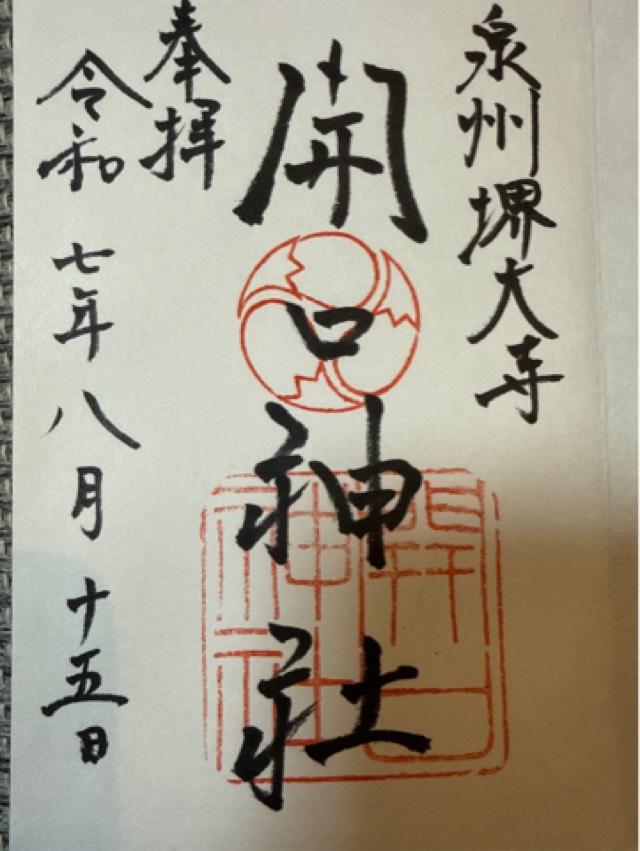 泉州堺大寺
開口神社
開口神社
奉拝
令和七年八月十五日